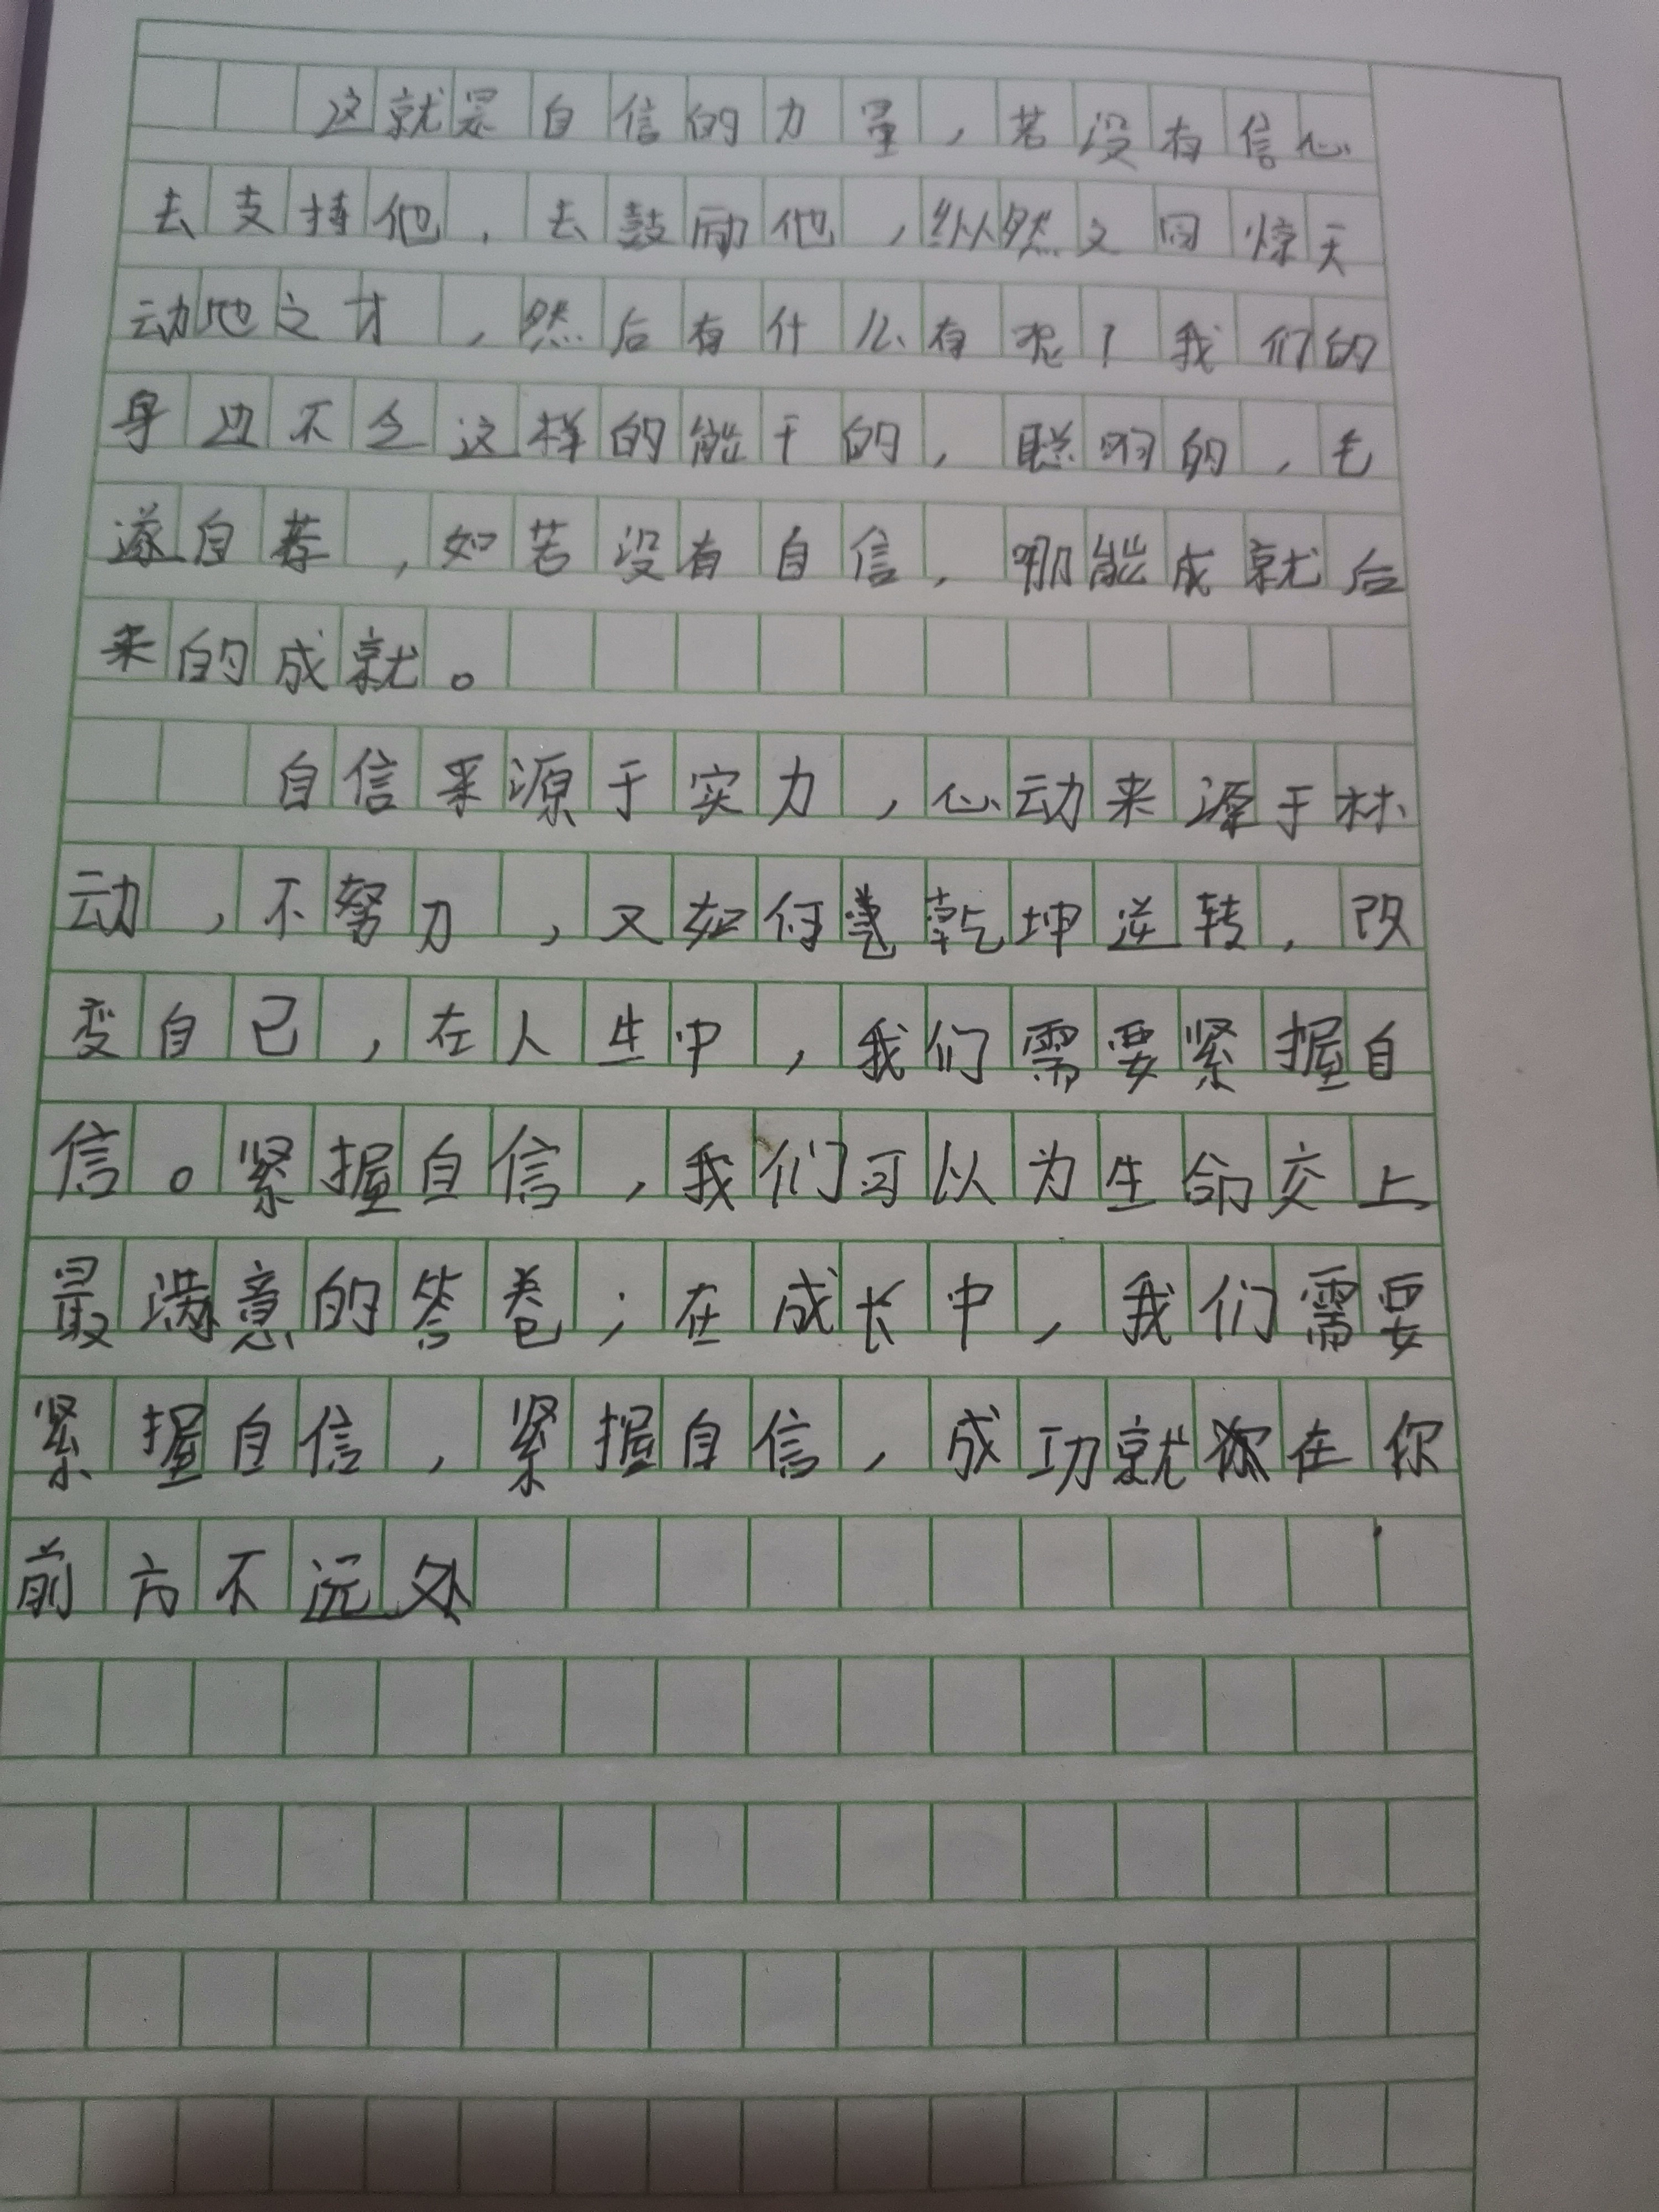 这就是自信的力量，若没有信心
去支持他，去鼓励他，纵然文同惊天
动地之才，然后有什么有呢！我们的
身边不乏这样的能干的，聪明的，毛
遂自荐，如若没有自信，哪能成就后
来的成就。
自信来源于实力，心动来源于
动，不努力，又如何 乾坤逆转，改
变自己，在人生中，我们需要紧握自
信。紧握自信，我们可以为生命交上
最满意的答卷；在成长中，我们需要
紧握自信，紧握自信，成功就在你
前方不远处